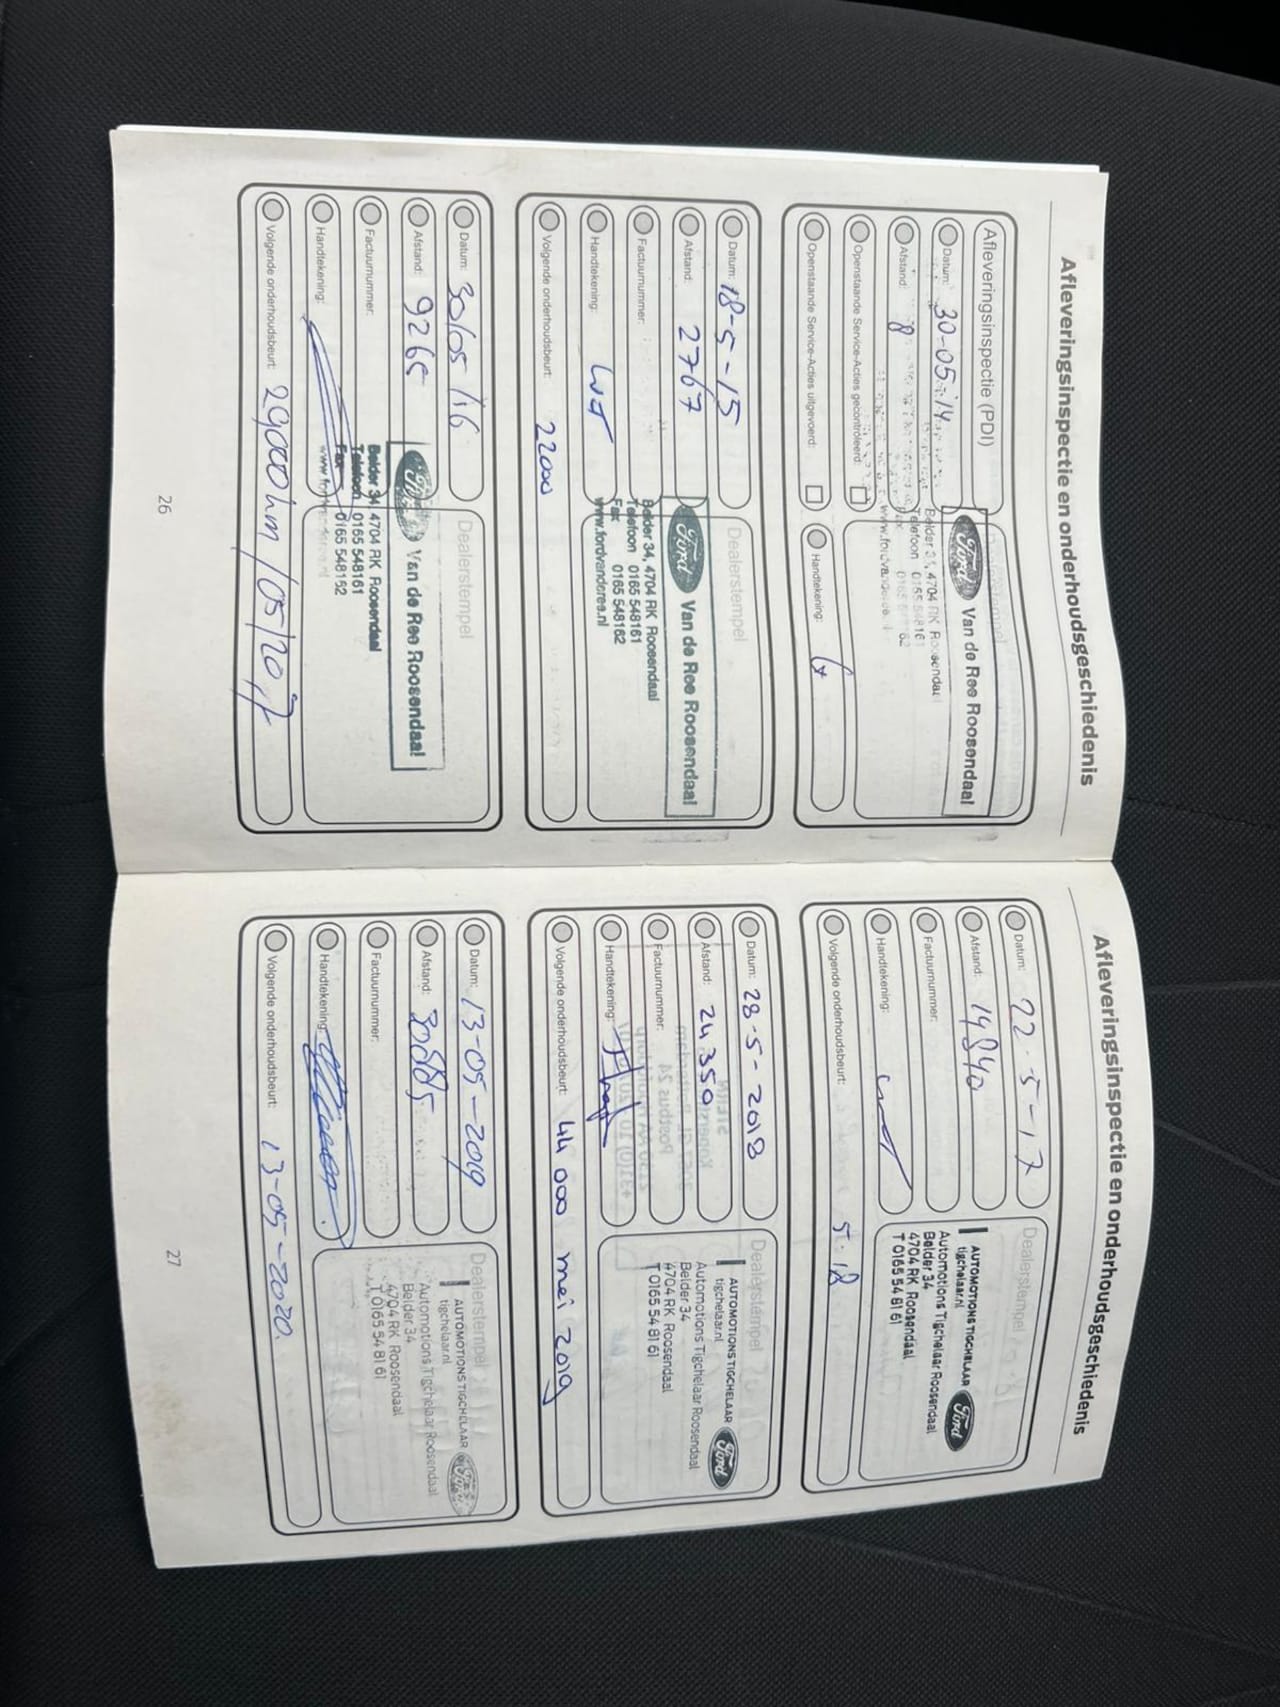 Afleveringsinspectie en onderhoudsgeschiedenis
Afleveringsinspectie (PDI)
Datum: 30-05-'14
Afstand: 8
Openstaande Service-Acties gecontroleerd:
Openstaande Service-Acties uitgevoerd:
Handtekening:
Ford Van de Ree Roosendaal
Belder 34, 4704 RK Roosendaal
Telefoon 0165 548161
Fax 0165 548162
www.fordvanderee.nl
Datum: 18-5-15
Afstand: 2767
Factuurnummer:
Handtekening:
Volgende onderhoudsbeurt: 22000
Dealerstempel
Ford Van de Ree Roosendaal
Belder 34, 4704 RK Roosendaal
Telefoon 0165 548161
Fax 0165 548162
www.fordvanderee.nl
Datum: 30/05/'16
Afstand: 9265
Factuurnummer:
Handtekening:
Volgende onderhoudsbeurt: 29000km /05/2017
Dealerstempel
Ford Van de Ree Roosendaal
Belder 34, 4704 RK Roosendaal
Telefoon 0165 548161
Fax 0165 548162
26
Afleveringsinspectie en onderhoudsgeschiedenis
Datum: 22-5-17
Afstand: 14840
Factuurnummer:
Handtekening:
Volgende onderhoudsbeurt: 5-18
Dealerstempel
AUTOMOTIONS TIGCHELAAR Ford
tigchelaar.nl
Automotions Tigchelaar Roosendaal
Belder 34
4704 RK Roosendaal
T 0165 54 81 61
Datum: 28-5-2018
Afstand: 24350
Factuurnummer:
Handtekening:
Volgende onderhoudsbeurt: 44 000 mei 2019
Dealerstempel
AUTOMOTIONS TIGCHELAAR Ford
tigchelaar.nl
Automotions Tigchelaar Roosendaal
Belder 34
4704 RK Roosendaal
T 0165 54 81 61
Datum: 13-05-2019
Afstand: 30885
Factuurnummer:
Handtekening:
Volgende onderhoudsbeurt: 13-05-2020.
Dealerstempel
AUTOMOTIONS TIGCHELAAR Ford
tigchelaar.nl
Automotions Tigchelaar Roosendaal
Belder 34
4704 RK Roosendaal
T 0165 54 81 61
27